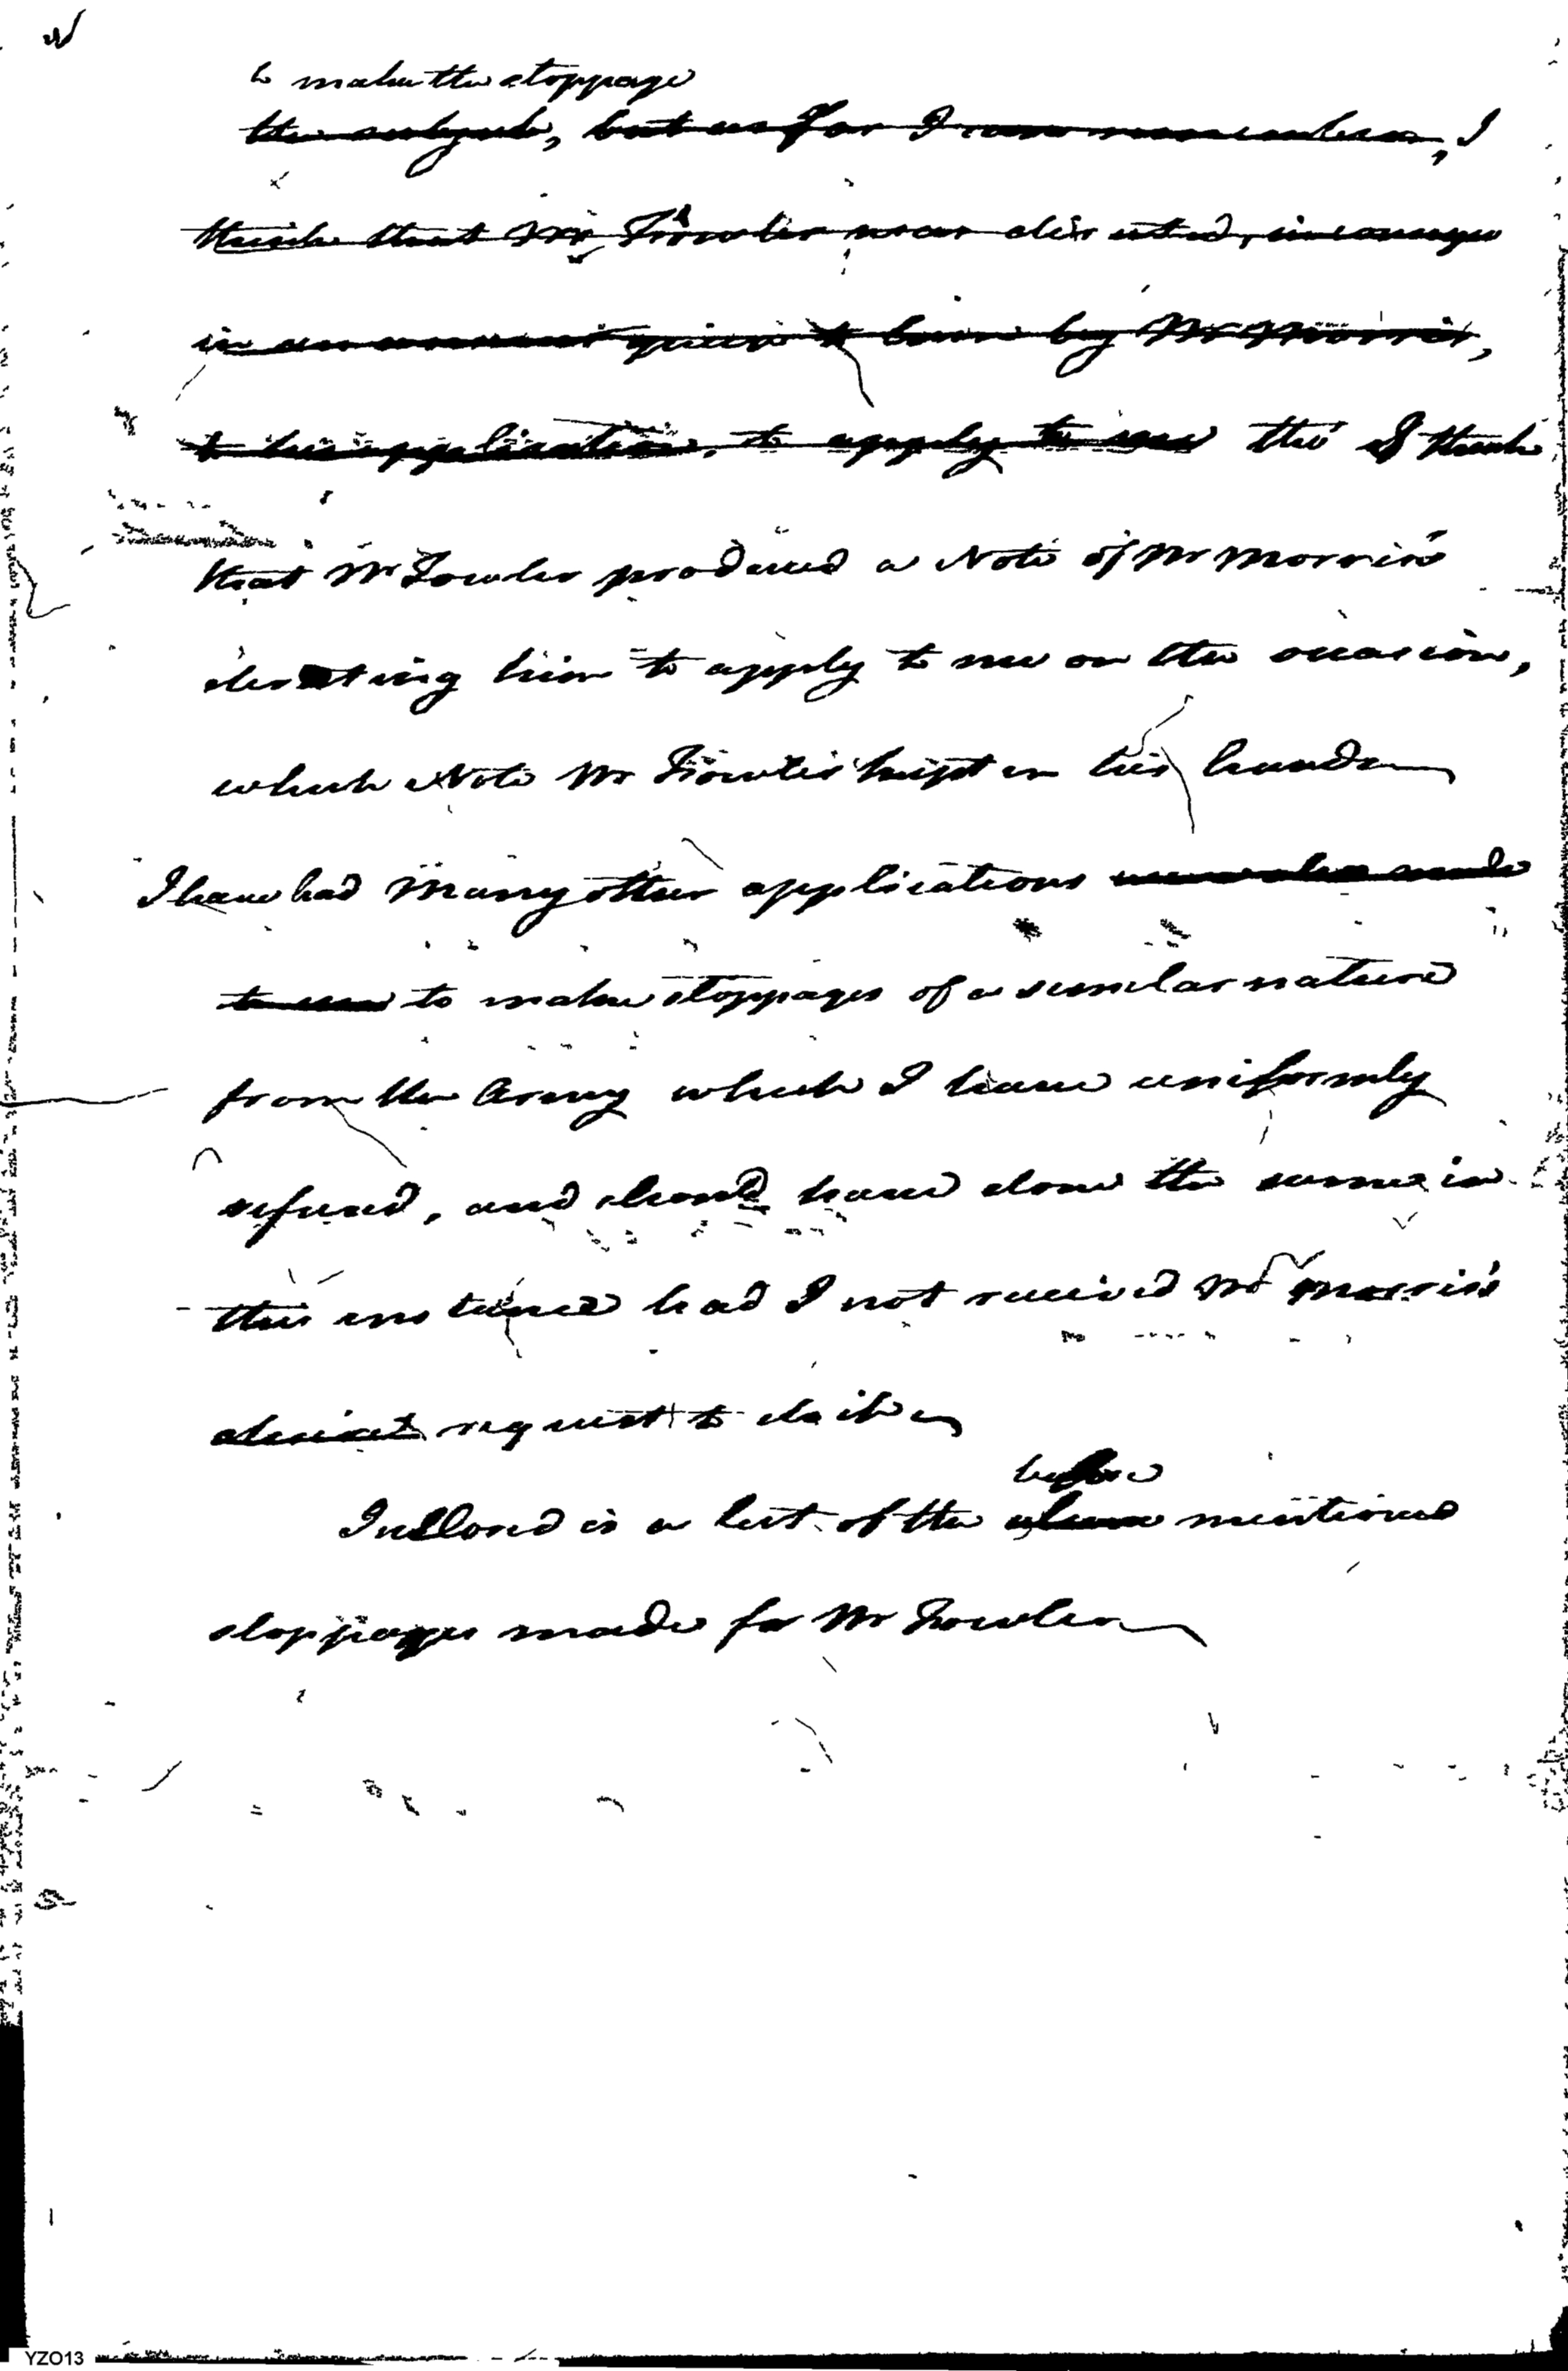 to make the stoppage
the subject, but as far I can remember, I
think that Mr Fowler was directed,
in an answer given to him by Mr Morris,
to his application, to apply to me tho' I think
that Mr Fowler produced a Note of Mr Morris's
directing him to apply to me on the occasion,
which Note Mr Fowler kept in his hands
I have had Many other applications made
to me to make stoppages of a similar nature
from the Army which I have uniformly
refused, and should have done the same in
this instance had I not received Mr Morris's
request to do it
before
Inclosed is a list of the above mentioned
stoppages made for Mr Fowler
YZO13